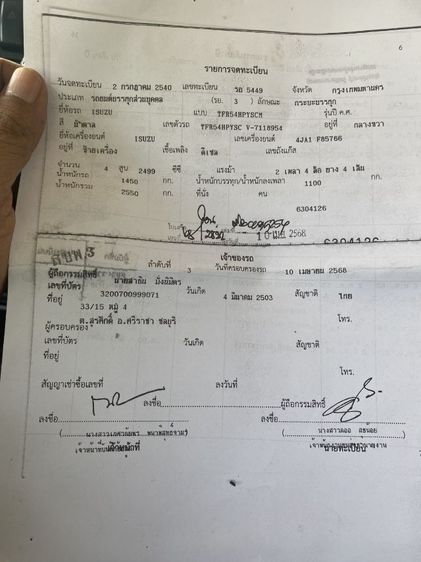 6
รายการจดทะเบียน
วันจดทะเบียน 2 กรกฎาคม 2540 เลขทะเบียน รถ 5449 จังหวัด กรุงเทพมหานคร
ประเภท รถยนต์บรรทุกส่วนบุคคล (รย. 3 ) ลักษณะ กระบะบรรทุก
ยี่ห้อรถ ISUZU แบบ TFR54HPYSCM รุ่นปี ค.ศ.
สี เลขตัวรถ TFR54HPYSC V-7118954 อยู่ที่ กลางขวา
ยี่ห้อเครื่องยนต์ ISUZU เลขเครื่องยนต์ 4JA1 F85766
อยู่ที่ เชื้อเพลิง ดีเซล เลขถังแก๊ส
จำนวน 4 สูบ 2499 ซีซี แรงม้า 2 เพลา 4 ล้อ ยาง 4 เส้น
น้ำหนักรถ 1450 กก. น้ำหนักบรรทุก/น้ำหนักลงเพลา 1100 กก.
น้ำหนักรวม 2550 กก. ที่นั่ง คน
6304126
2568
6304126
เจ้าของรถ
ลำดับที่ 3 วันที่ครอบครองรถ 10 เมษายน 2568
ผู้ถือกรรมสิทธิ์
เลขที่บัตร 3200700999071 วันเกิด 4 มีนาคม 2503 สัญชาติ ไทย
ที่อยู่ 33/15 หมู่ 4
ต.สุรศักดิ์ อ.ศรีราชา ชลบุรี โทร.
ผู้ครอบครอง
เลขที่บัตร วันเกิด สัญชาติ
ที่อยู่
โทร.
สัญญาเช่าซื้อเลขที่ ลงวันที่
ลงชื่อ ผู้ถือกรรมสิทธิ์
ลงชื่อ ลงชื่อ
นายทะเบียน